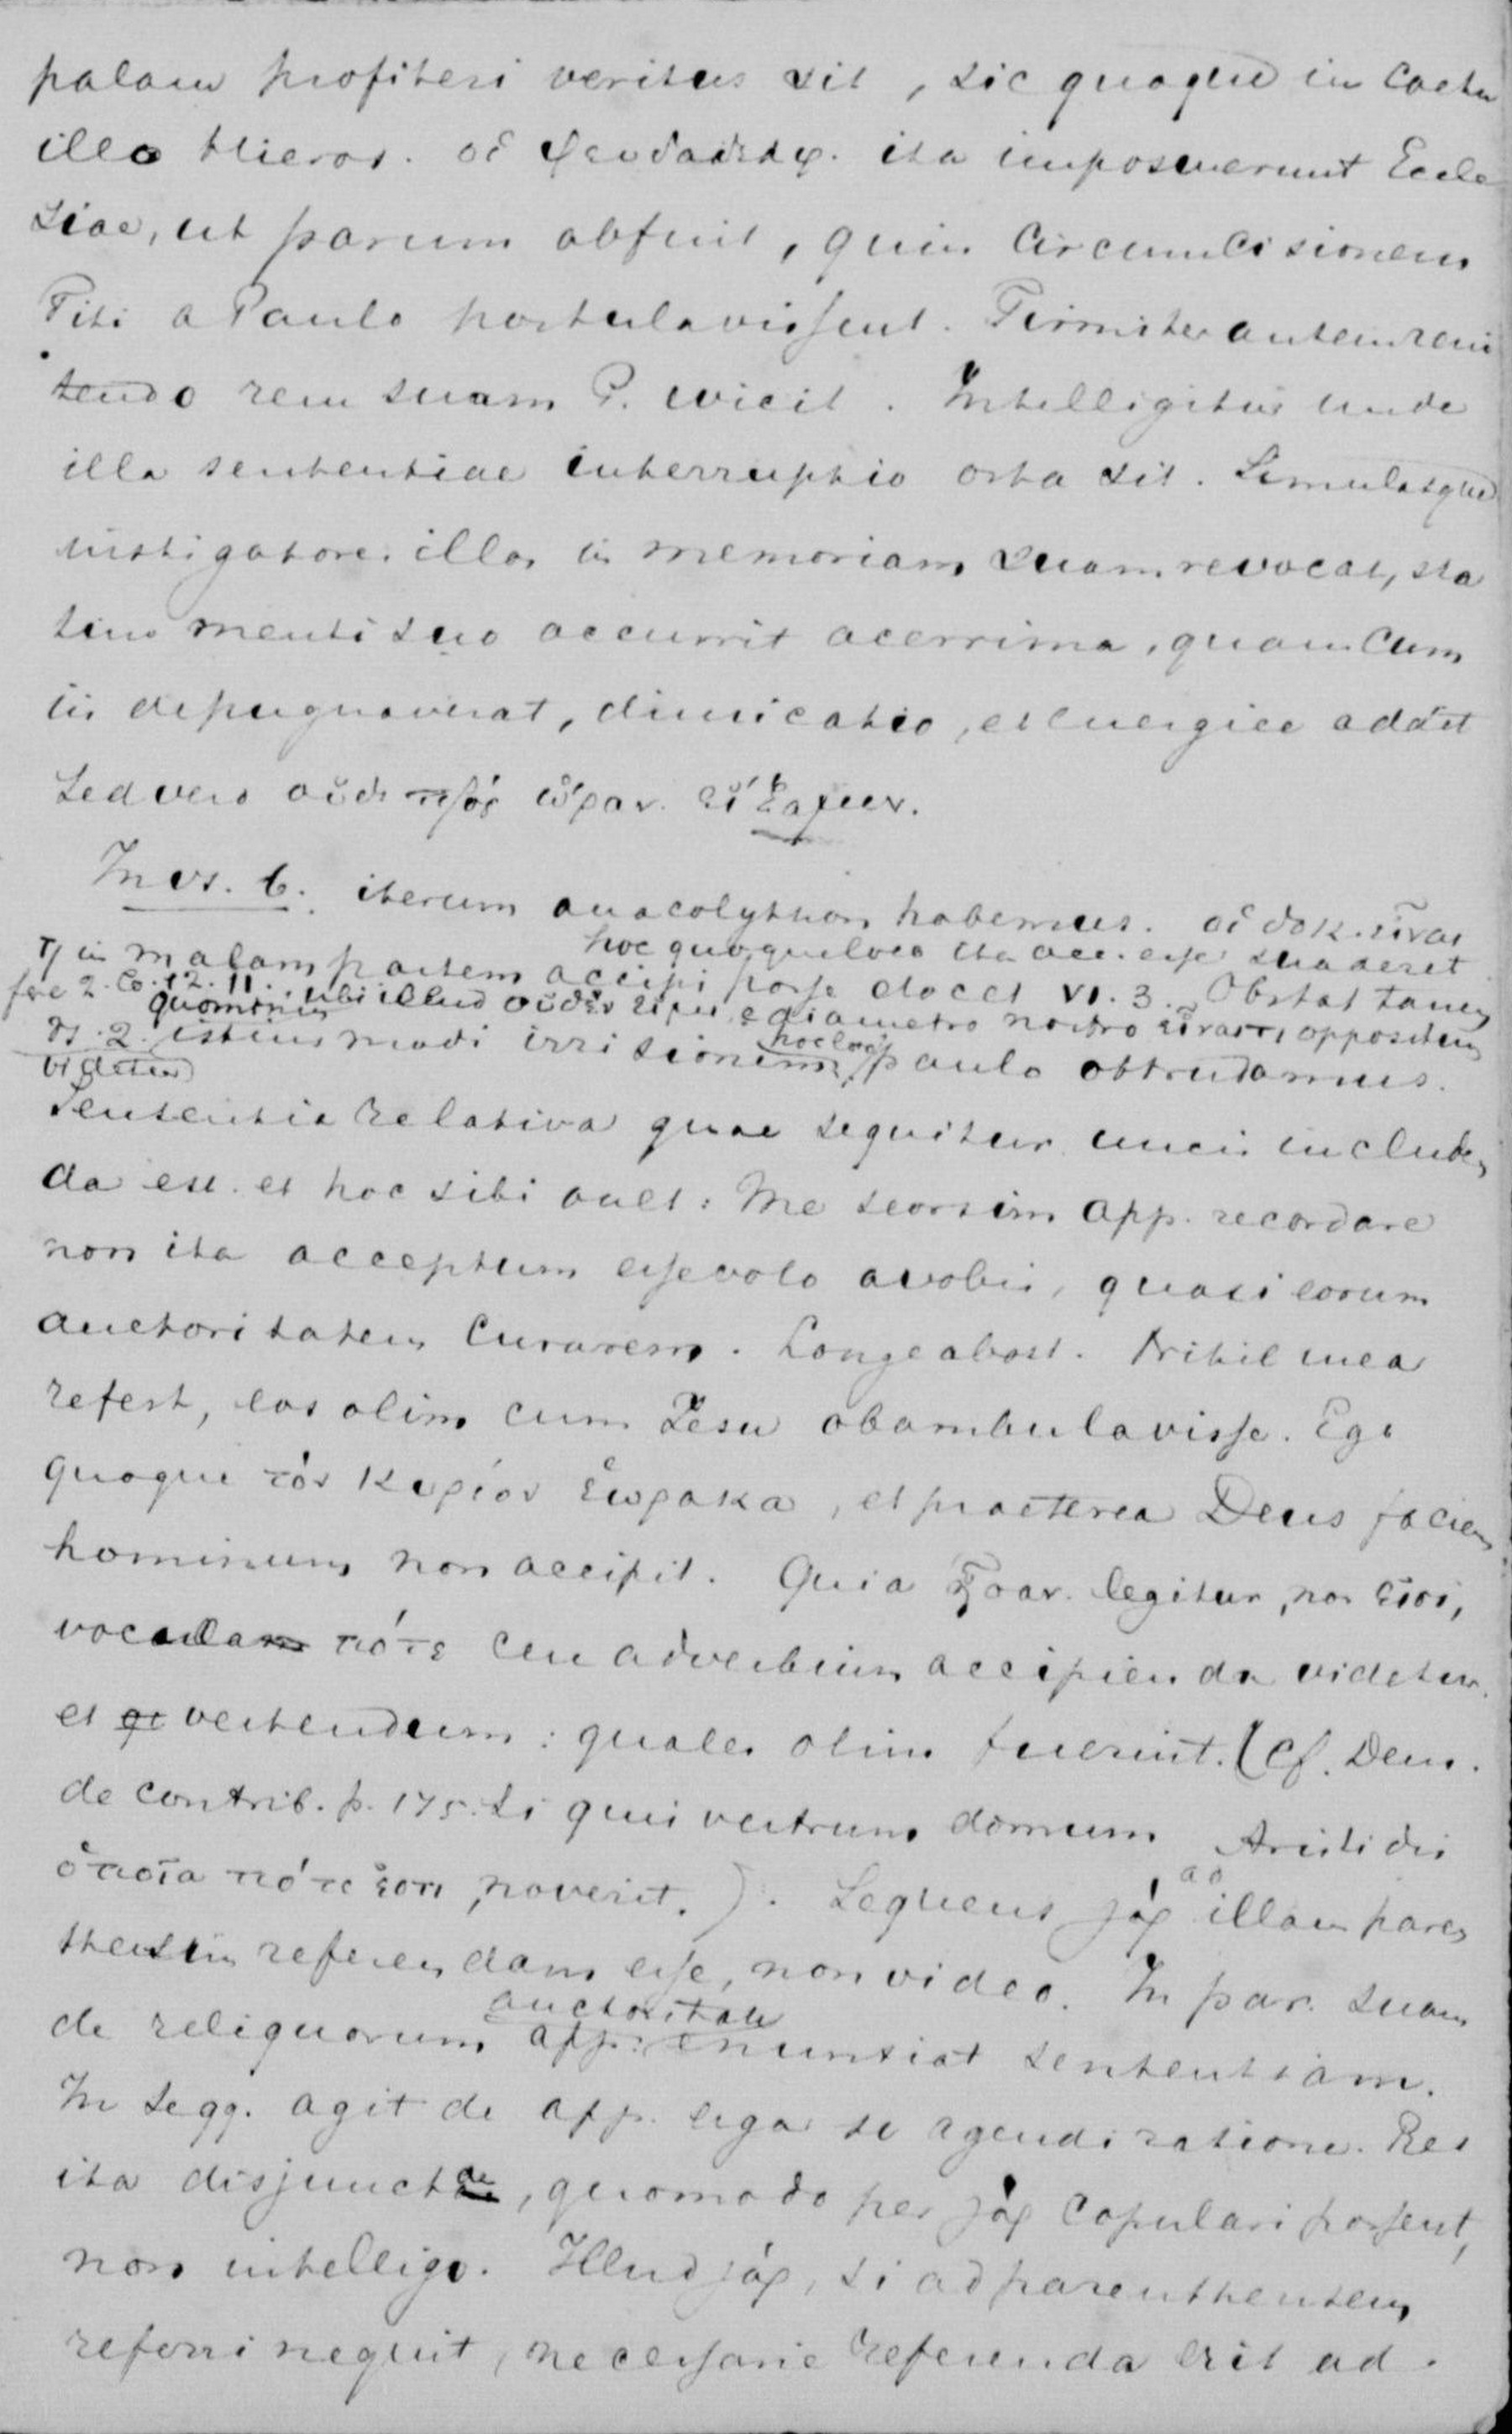 palam profiteri veritus sit, sic quoque in Coetu
illo Hieros. οἱ ψευδαδελφ. ita imposuerunt Eccle
siae, ut parum abfuit, quin Circumcisionem
Titi a Paulo postulavissent. Firmiter autem reni
tendo rem suam P. vicit. Intelligitur unde
illa sententiae interruptio orta sit. Simulatque
instigatores illos in memoriam suam revocat, sta
tim menti suo accurrit acerrima, quam Cum
iis depugnaverat, dimicatio, et energice addit
Sed vero οὐδὲ πρός ὥραν εἴξαμεν.
In vs. 6. iterum anacolython habemus. οἱ δοκ. εἶναι
τι in malam partem accipi posse docet VI. 3. Obstat tamen
hoc quoque loco ita acc. esse suaderet
fere 2. Co. 12. 11. ubi illud οὐδέν εἰμι e diametro nostro εἶναι τι oppositum
videtur
vs. 2. quominus istius modi irrisionem hoc loco Paulo obtrudamus.
Sententia relativa quae sequitur uncis incluben
da est. et hoc sibi vult: Me seorsim App. recordare
non ita acceptum esse volo a vobis, quasi eorum
auctoritatem Curarem. Longe abest. Nihil mea
refert, eos olim cum Jesu obambulavisse. Ego
quoque τὸν Κυρίον ἑώρακα, et praeterea Deus faciem
hominum non accipit. Quia ἦσαν legitur, non εἰσι,
vocula πότε ceu adverbium accipienda videtur.
et vertendum: quales olim fuerint. (Cf. Dem.
de Contrib. p. 175. Si quis vestrum domum Aristidis
ὁποία πότε ἐστι, noverit.). Sequens γάρ ad illam paren
thesin referendam esse, non video. In par. suam
de reliquorum app. auctoritate enuntiat sententiam.
In seqq. agit de app. erga se agendi ratione. Res
ita disjunctae, quomodo per γάρ Copulari possent,
non intelligo. Illud γάρ, si ad parenthensem
referri nequit, necessarie referenda erit ad